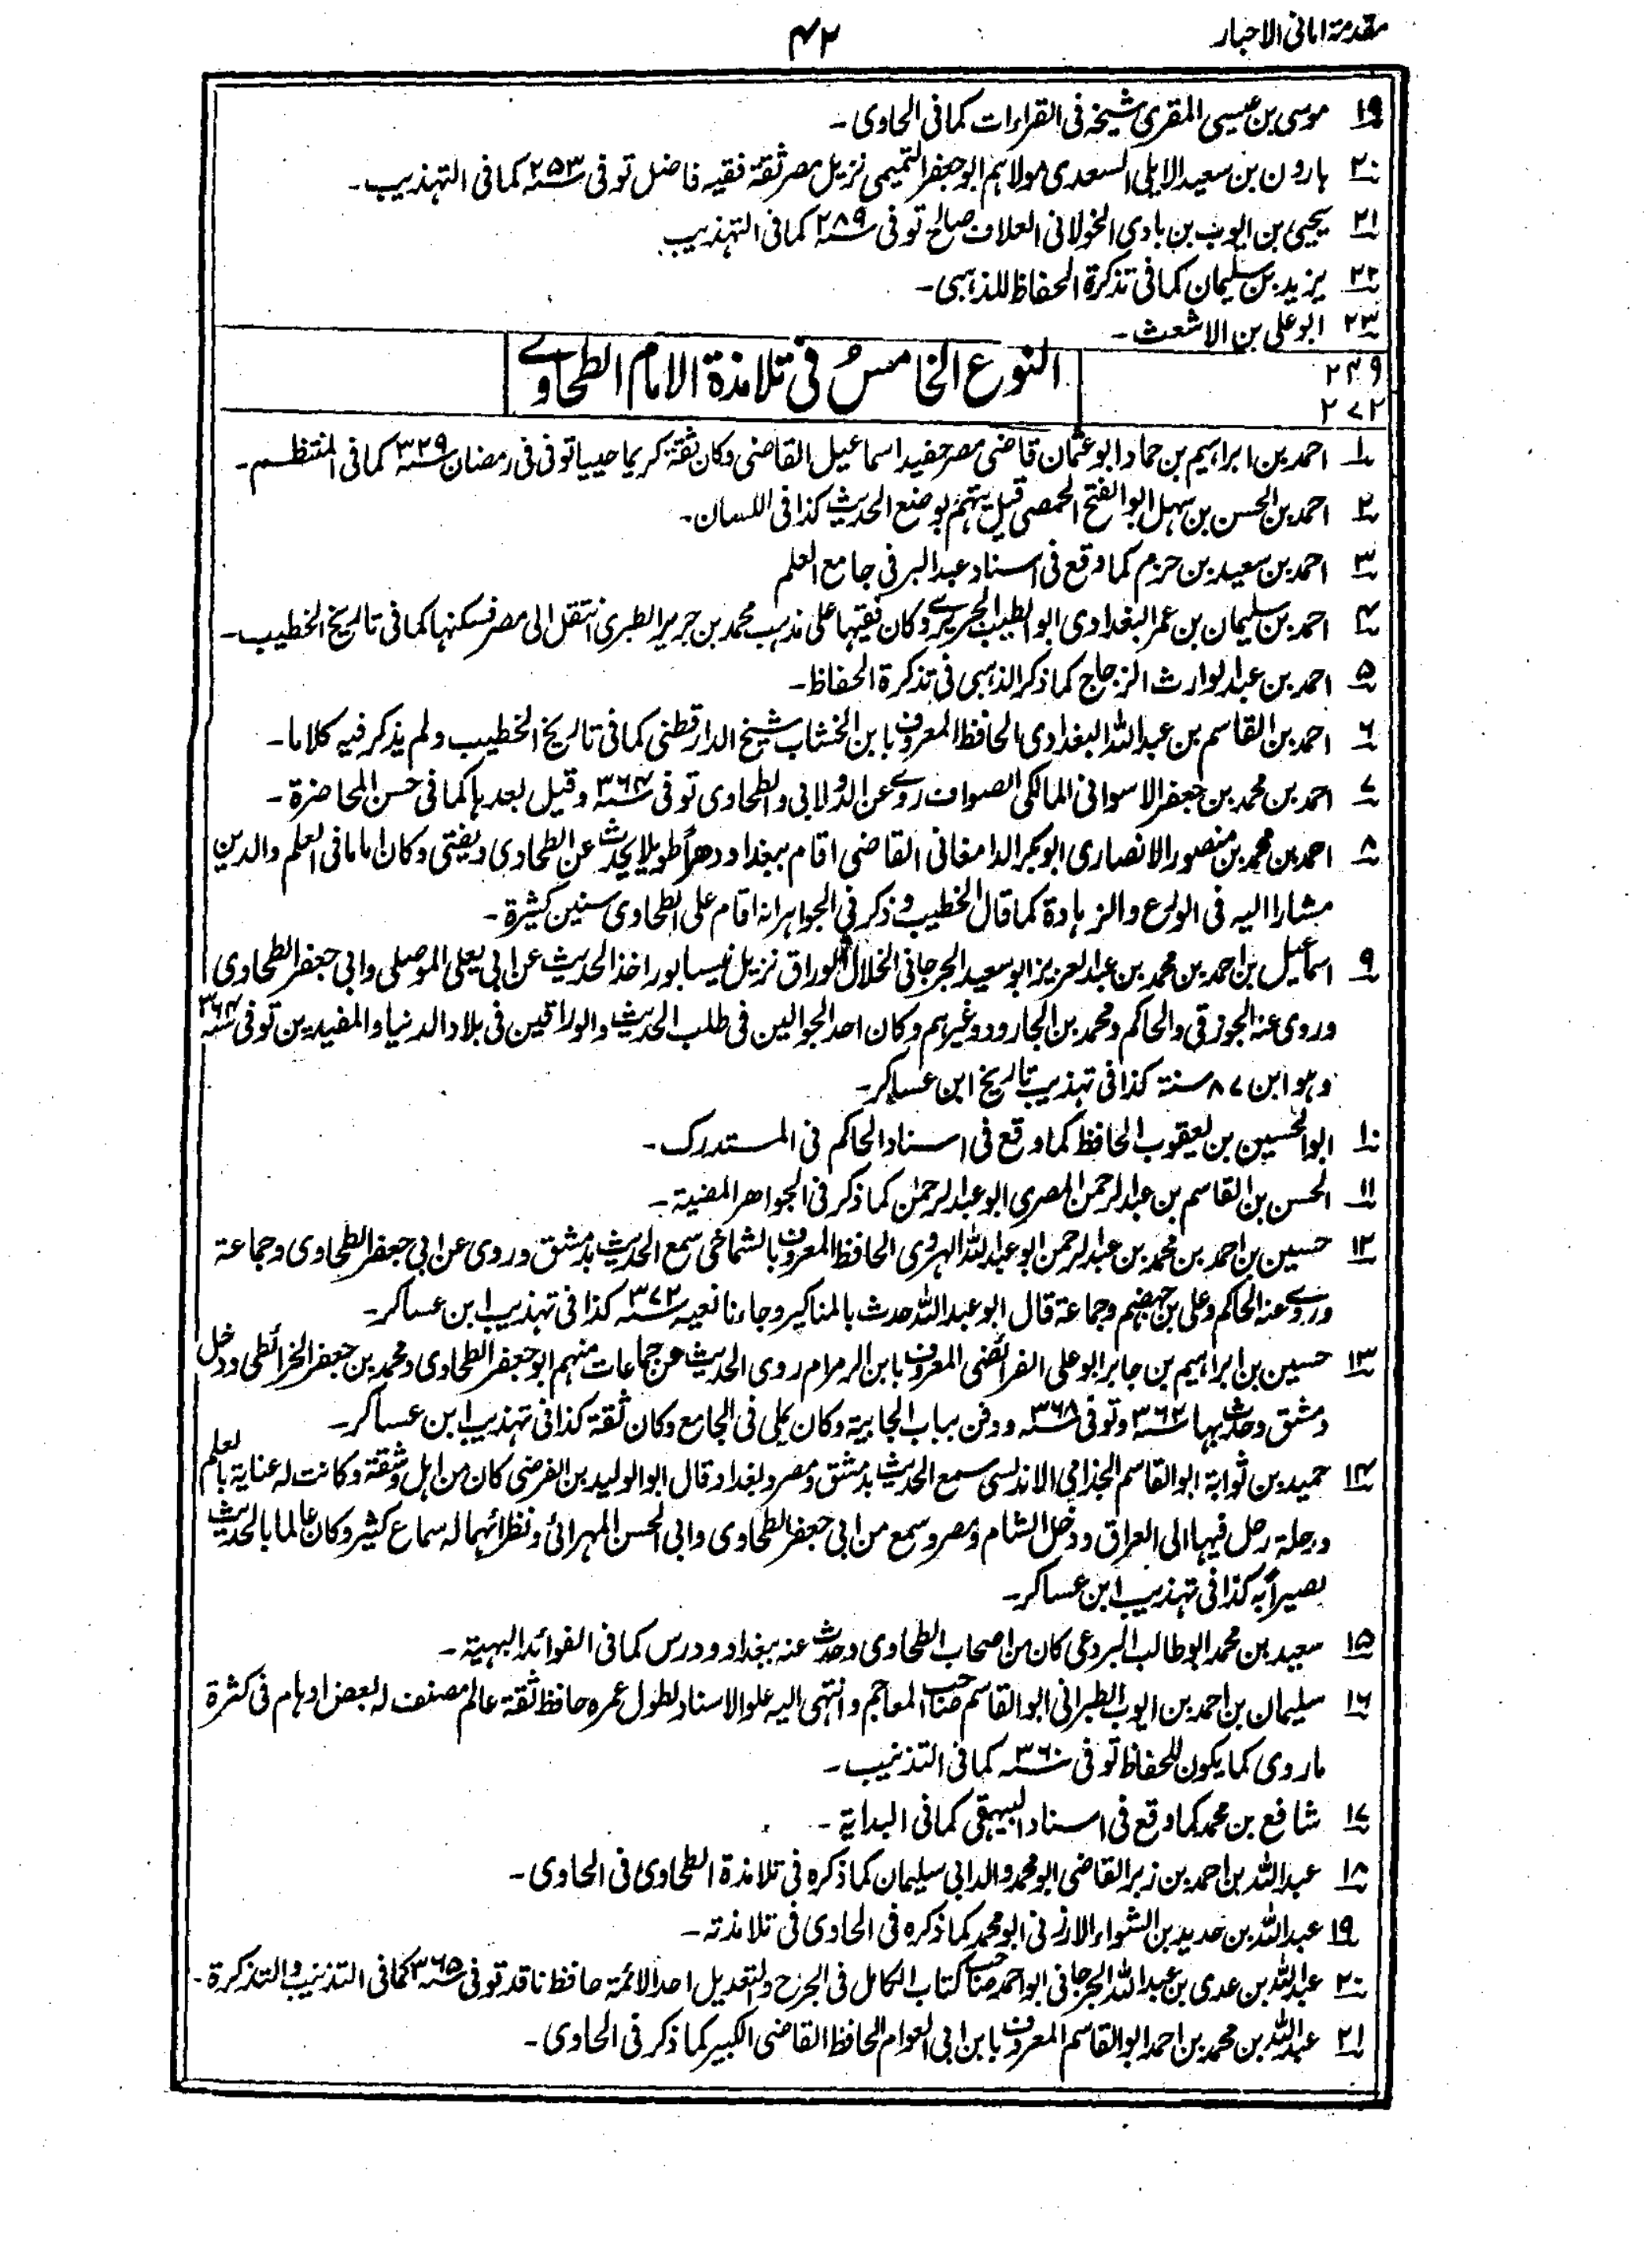 مقدمة امانی الاحبار
۴۲
۱۹ موسی بن عیسی المقری شیخہ فی القراءات کما فی الحاوی۔
۲۰ ہارون بن سعید الایلی السعدی مولاہم ابو جعفر التمیمی نزیل مصر ثقۃ فقیہ فاضل توفی سنہ ۲۵۳ کما فی التہذیب۔
۲۱ یحیی بن ایوب بن بادی الخولانی العلاف صالح توفی سنہ ۲۸۹ کما فی التہذیب
۲۲ یزید بن سلیمان کما فی تذکرۃ الحفاظ للذہبی۔
۲۳ ابو علی بن الاشعث۔
۲۴۹
۲۷۲
النوع الخامسُ فی تلامذۃ الامام الطحاوے
۱ احمد بن ابراہیم بن حماد ابو عثمان قاضی مصر حفید اسماعیل القاضی وکان ثقۃ کریما حییا توفی فی رمضان سنہ ۳۲۹ کما فی المنتظم۔
۲ احمد بن الحسن بن سہل ابو الفتح الحمصی قیل یتہم بوضع الحدیث کذا فی اللسان۔
۳ احمد بن سعید بن حزم کما وقع فی اسناد عبد البر فی جامع العلم
۴ احمد بن سلیمان بن عمر البغدادی ابو الطیب الجریرے وکان فقیہا علی مذہب محمد بن جریر الطبری انتقل الی مصر فسکنہا کما فی تاریخ الخطیب۔
۵ احمد بن عبد الوارث الزجاج کما ذکر الذہبی فی تذکرۃ الحفاظ۔
۶ احمد بن القاسم بن عبد اللہ البغدادی الحافظ المعروف بابن الخشاب شیخ الدارقطنی کما فی تاریخ الخطیب ولم یذکر فیہ کلاما۔
۷ احمد بن محمد بن جعفر الاسوانی المالکی الصواف روے عن الدولابی والطحاوی توفی سنہ ۳۶۴ وقیل بعدہا کما فی حسن المحاضرۃ۔
۸ احمد بن محمد بن منصور الانصاری ابوبکر الدامغانی القاضی اقام ببغداد دھراً طویلا یحدث عن الطحاوی ویفتی وکان اماما فی العلم والدین
مشارا الیہ فی الورع والزہادۃ کما قال الخطیب وذکر فی الجواہر انہ اقام علی الطحاوی سنین کثیرۃ۔
۹ اسماعیل بن احمد بن محمد بن عبد العزیز ابو سعید الجرجانی الخلال الوراق نزیل نیسابور اخذ الحدیث عن ابی یعلی الموصلی وابی جعفر الطحاوی
وروی عنہ الجوزقی والحاکم ومحمد بن الجارود وغیرہم وکان احد الجوالین فی طلب الحدیث والوراقین فی بلاد الدنیا والمفیدین توفی سنہ ۳۶۴
وہو ابن ۸۷ سنۃ کذا فی تہذیب تاریخ ابن عساکر۔
۱۰ ابو الحسین بن یعقوب الحافظ کما وقع فی اسناد الحاکم فی المستدرک۔
۱۱ الحسن بن القاسم بن عبد الرحمن المصری ابو عبد الرحمٰن کما ذکر فی الجواھر المضیۃ۔
۱۲ حسین بن احمد بن محمد بن عبد الرحمن ابو عبد اللہ الہروی الحافظ المعروف بالشماخی سمع الحدیث بدمشق وروی عن ابی جعفر الطحاوی وجماعۃ
وروے عنہ الحاکم وعلی بن جہضم وجماعۃ قال ابو عبد اللہ حدث بالمناکیر وجاءنا نعیہ سنہ ۳۷۲ کذا فی تہذیب ابن عساکر۔
۱۳ حسین بن ابراہیم بن جابر ابو علی الفرائضی المعروف بابن الرمرام روی الحدیث عن جماعات منہم ابو جعفر الطحاوی ومحمد بن جعفر الخرائطی ودخل
دمشق وحدث بہا سنہ ۳۶۲ وتوفی سنہ ۳۶۸ ودفن بباب الجابیۃ وکان یملی فی الجامع وکان ثقۃ کذا فی تہذیب ابن عساکر۔
۱۴ حمید بن ثوابۃ ابو القاسم الجذامی الاندلسی سمع الحدیث بدمشق ومصر وبغداد وقال ابو الولید بن الفرضی کان من اہل وشقۃ وکانت لہ عنایۃ بالعلم
ورحلۃ رحل فیہا الی العراق ودخل الشام ومصر وسمع من ابی جعفر الطحاوی وابی الحسن المہرائی ونظرائہما لہ سماع کثیر وکان عالما بالحدیث
بصیراً بہ کذا فی تہذیب ابن عساکر۔
۱۵ سعید بن محمد ابو طالب البردعی کان من اصحاب الطحاوی وحدث عنہ ببغداد ودرس کما فی الفوائد البہیۃ۔
۱۶ سلیمان بن احمد بن ایوب الطبرانی ابو القاسم صاحب المعاجم وانتہی الیہ علو الاسناد لطول عمرہ حافظ ثقۃ عالم مصنف لہ بعض اوہام فی کثرۃ
ما روی کما یکون للحفاظ توفی سنہ ۳۶۰ کما فی التذنیب۔
۱۷ شافع بن محمد کما وقع فی اسناد البیہقی کما فی البدایۃ۔
۱۸ عبد اللہ بن احمد بن زبر القاضی ابو محمد والد ابی سلیمان کما ذکرہ فی تلامذۃ الطحاوی فی الحاوی۔
۱۹ عبد اللہ بن حدید بن الشواء الازنی ابو محمد کما ذکرہ فی الحاوی فی تلامذتہ۔
۲۰ عبد اللہ بن عدی بن عبد اللہ الجرجانی ابو احمد صاحب کتاب الکامل فی الجرح والتعدیل احد الائمۃ حافظ ناقد توفی سنہ ۳۶۵ کما فی التذنیب والتذکرۃ۔
۲۱ عبد اللہ بن محمد بن احمد ابو القاسم المعروف بابن ابی العوام الحافظ القاضی الکبیر کما ذکر فی الحاوی۔